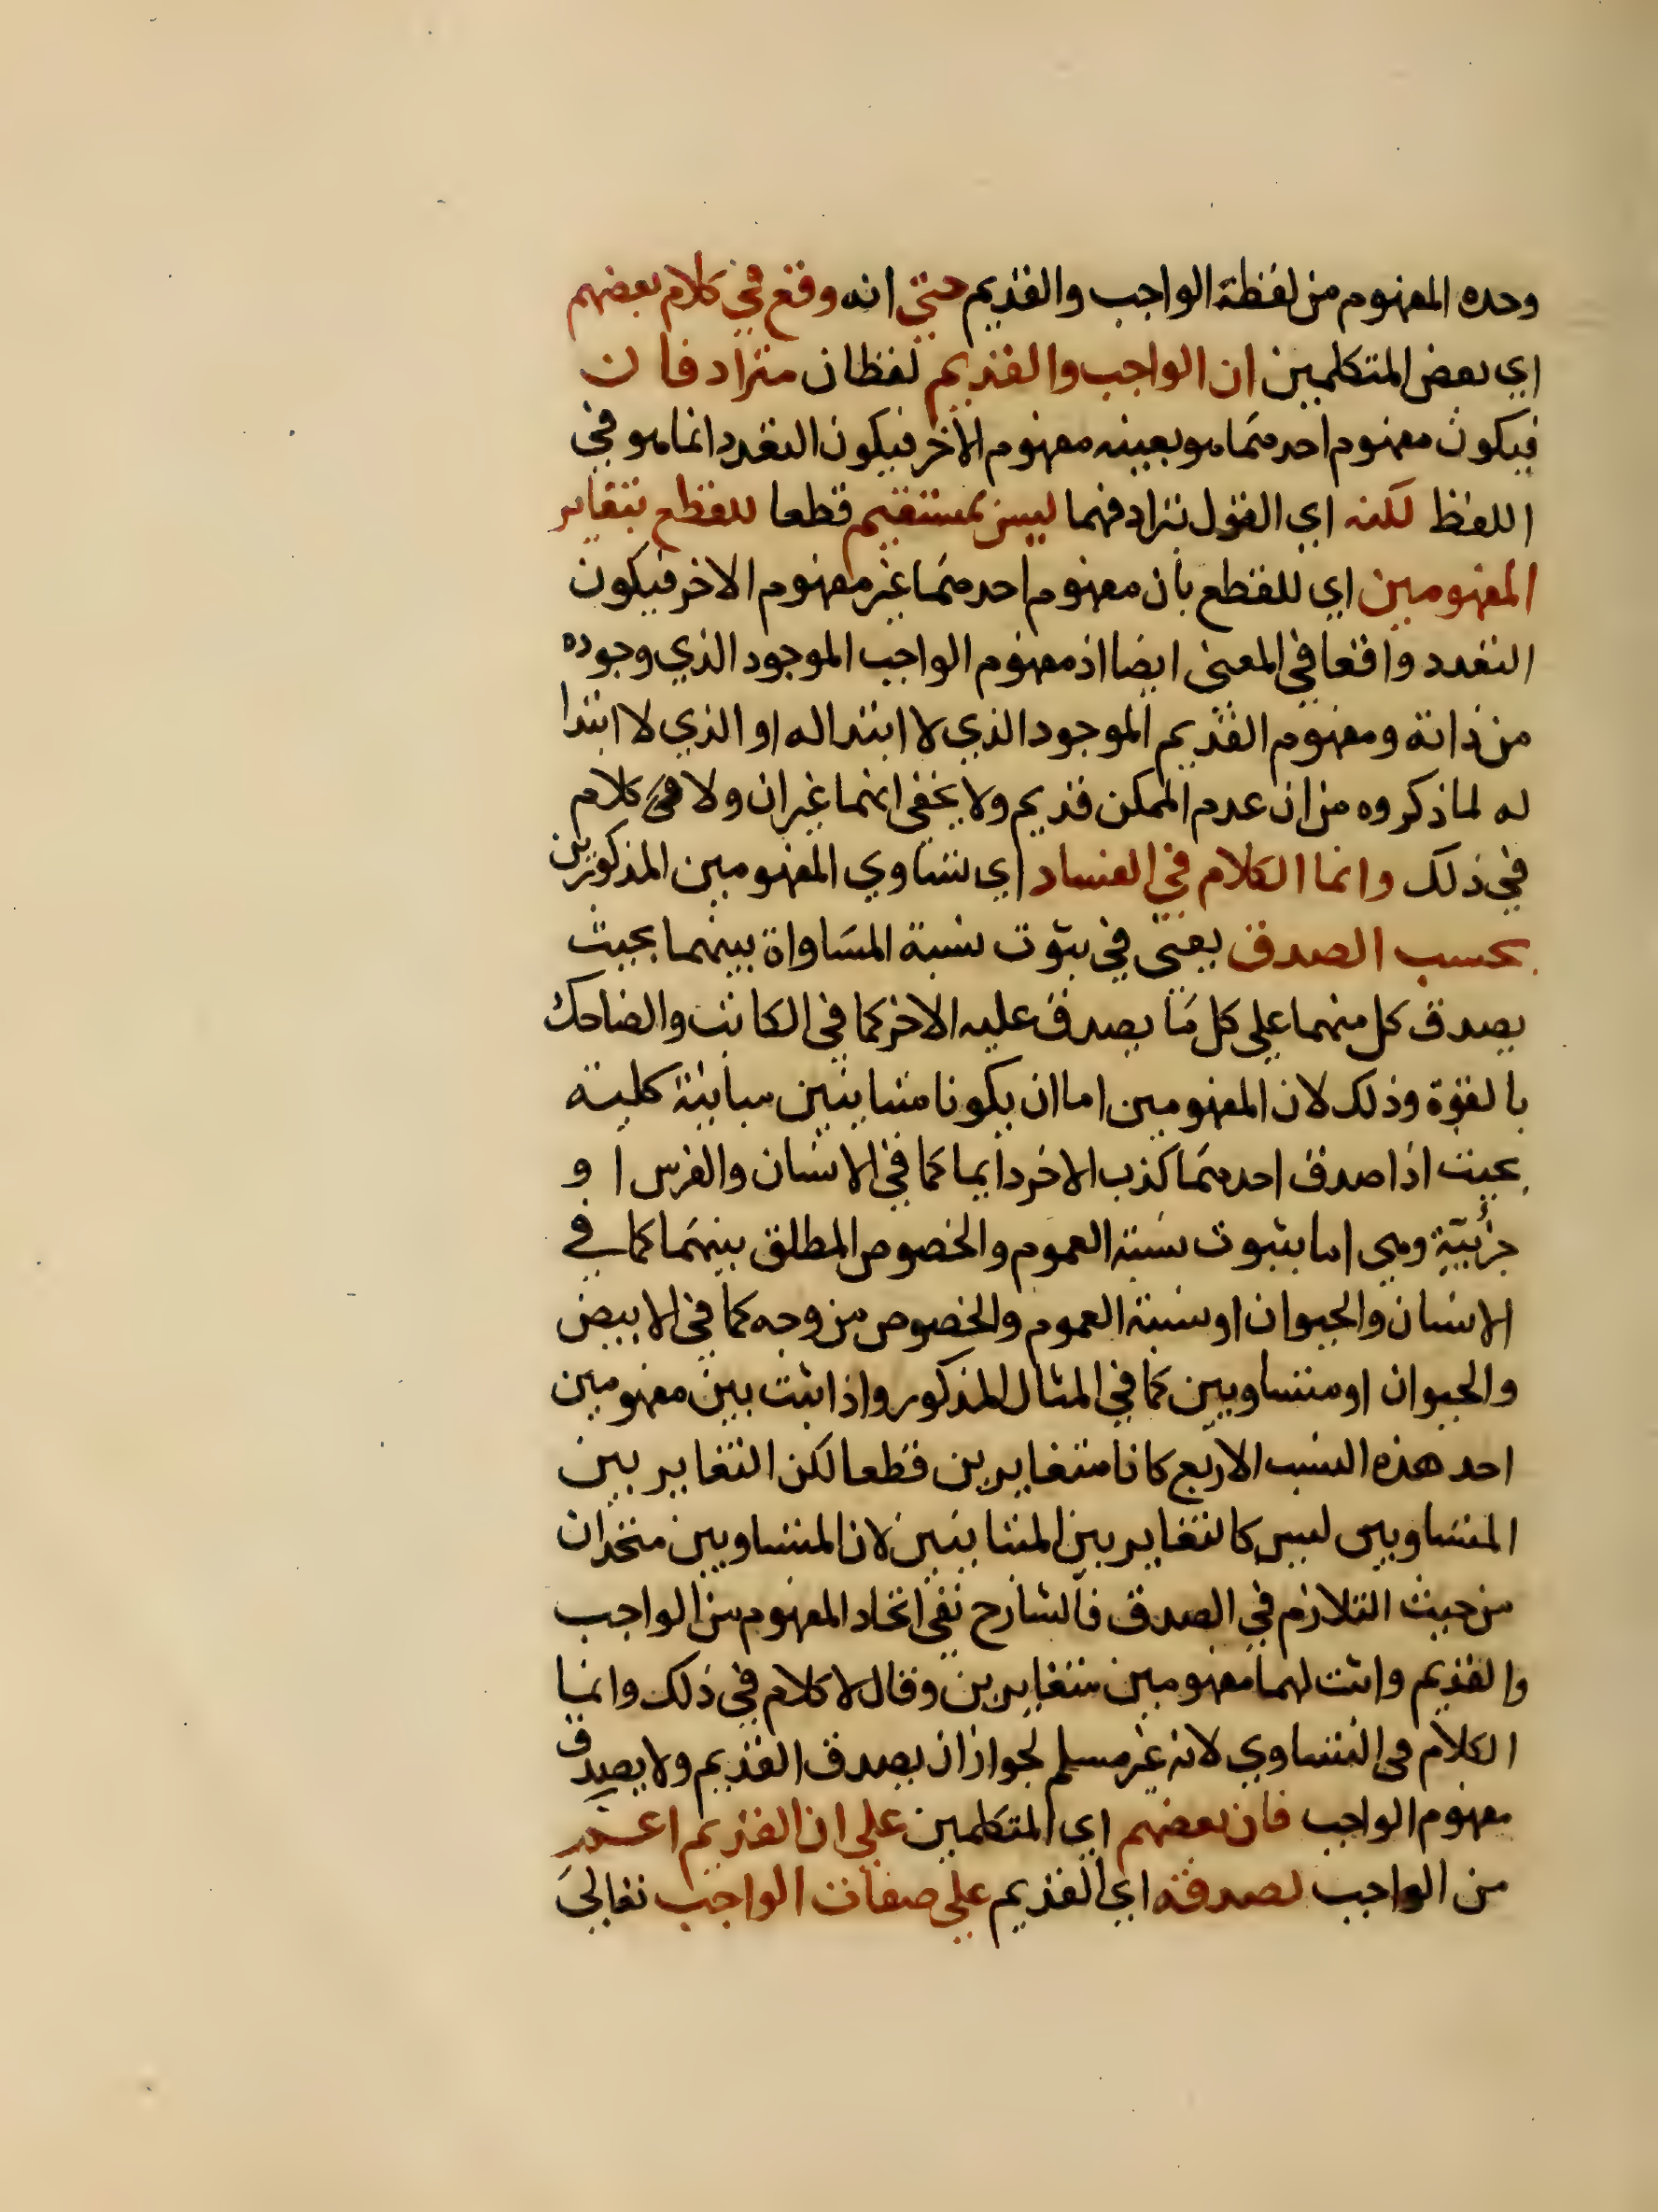 وحده المفهوم من لفظة الواجب والقديم حتى انه وقع في كلام بعضهم
اي بعض المتكلمين ان الواجب والقديم لفظان مترادفان
فيكون مفهوم احدهما هو بعينه مفهوم الاخر فيكون التعدد انما هو في
اللفظ لكنه اي القول بترادفهما ليس بمستقيم قطعا للقطع بتغاير
المفهومين اي للقطع بان مفهوم احدهما غير مفهوم الاخر فيكون
التعدد واقعا في المعنى ايضا اذ مفهوم الواجب الموجود الذي وجوده
من ذاته ومفهوم القديم الموجود الذي لا ابتدا له او الذي لا ابتدا
له لما ذكروه من ان عدم الممكن قديم ولا يخفى انهما غيران ولا كلام
في ذلك وانما الكلام في الفساد اي تساوي المفهومين المذكورين
بحسب الصدق يعني في ثبوت نسبة المساواة بينهما بحيث
يصدق كل منهما على كل ما يصدق عليه الاخر كما في الكاتب والضاحك
بالقوة وذلك لان المفهومين اما ان يكونا متباينين مباينة كلية
بحيث اذا صدق احدهما كذب الاخر دايما كما في الانسان والفرس او
جزئية وهي اما بثبوت نسبة العموم والخصوص المطلق بينهما كما في
الانسان والحيوان او نسبة العموم والخصوص من وجه كما في الابيض
والحيوان او متساويين كما في المثال المذكور واذا ثبت بين مفهومين
احد هذه النسب الاربع كانا متغايرين قطعا لكن التغاير بين
المتساويين ليس كالتغاير بين المتباينين لان المتساويين متحدان
من حيث التلازم في الصدق فالشارح نفى اتحاد المفهوم من الواجب
والقديم واثبت لهما مفهومين متغايرين وقال لا كلام في ذلك وانما
الكلام في التساوي لانه غير مسلم لجواز ان يصدق القديم ولا يصدق
مفهوم الواجب فان بعضهم اي المتكلمين على ان القديم اعم
من الواجب لصدقه اي القديم على صفات الواجب تعالى